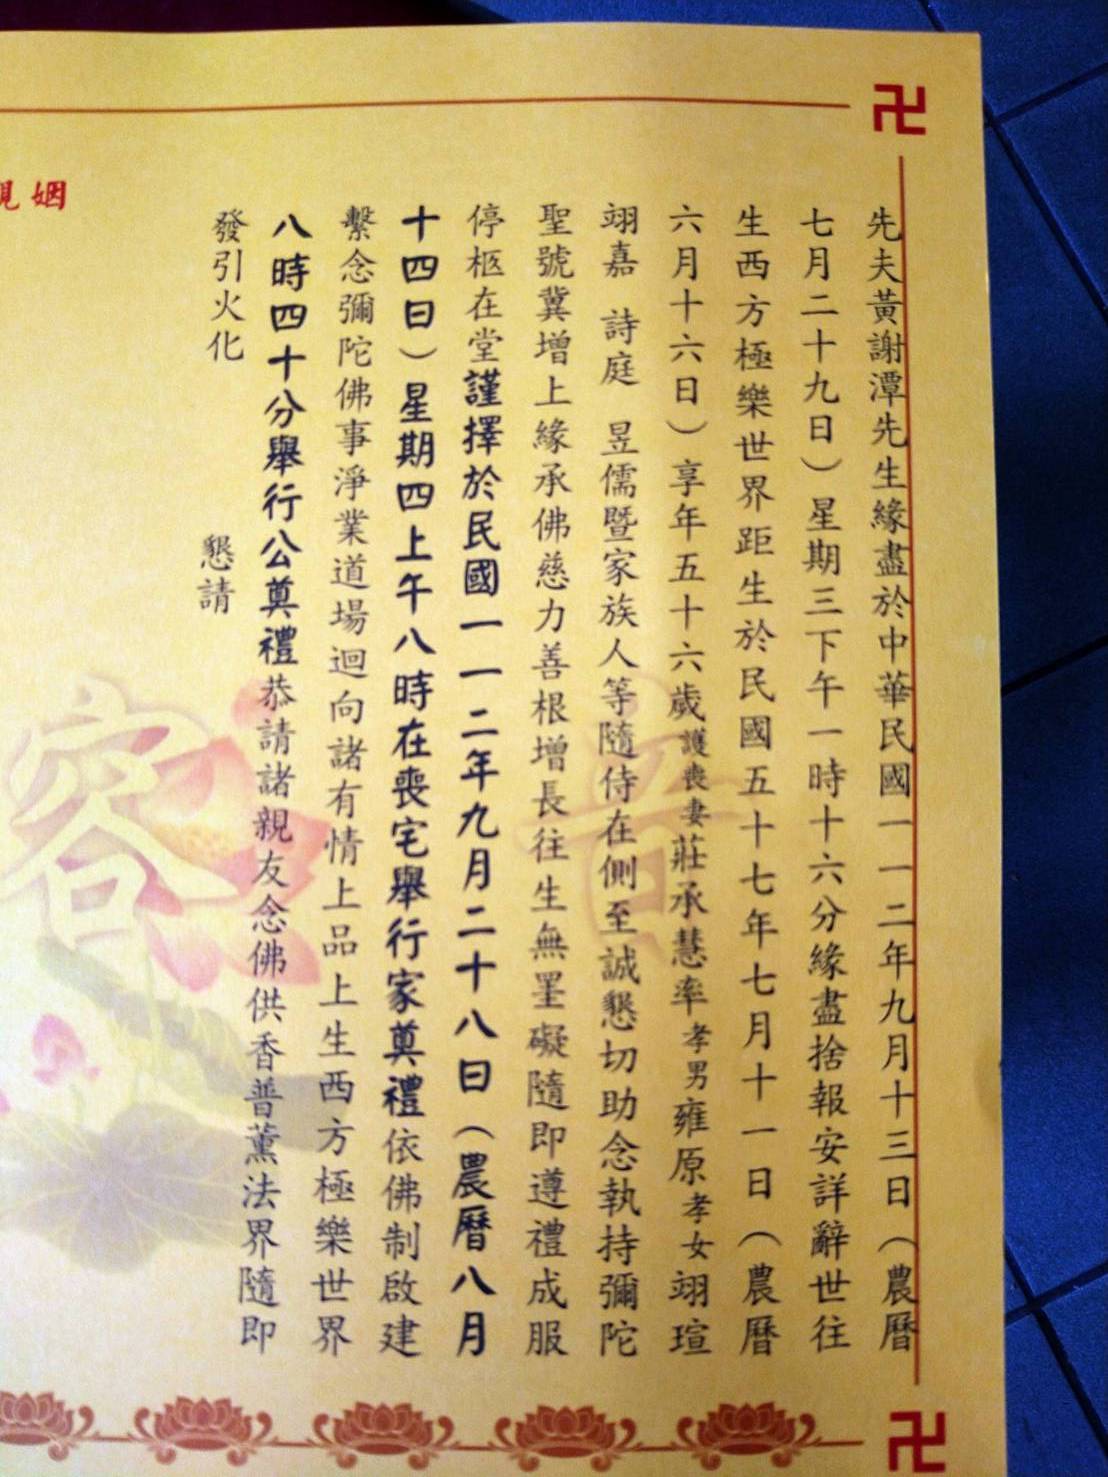 先夫黃謝潭先生緣盡於中華民國一一二年九月十三日（農曆
七月二十九日）星期三下午一時十六分緣盡捨報安詳辭世往
生西方極樂世界距生於民國五十七年七月十一日（農曆
六月十六日）享年五十六歲護喪妻莊承慧率孝男雍原孝女翊瑄
翊嘉 詩庭 昱儒暨家族人等隨侍在側至誠懇切助念執持彌陀
聖號冀增上緣承佛慈力善根增長往生無罣礙隨即遵禮成服
停柩在堂謹擇於民國一一二年九月二十八日（農曆八月
十四日）星期四上午八時在喪宅舉行家奠禮依佛制啟建
繫念彌陀佛事淨業道場迴向諸有情上品上生西方極樂世界
八時四十分舉行公奠禮恭請諸親友念佛供香普薰法界隨即
發引火化
懇請
姻
音
容